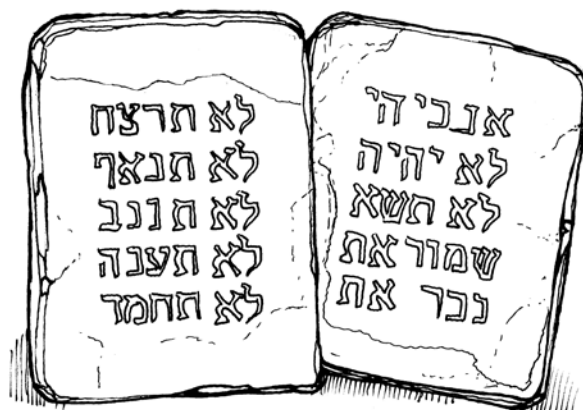 אנכי הי
לא יהיה
לא תשא
שמור את
נכר את
לא תרצח
לא תנאף
לא תגנב
לא תענה
לא תחמד